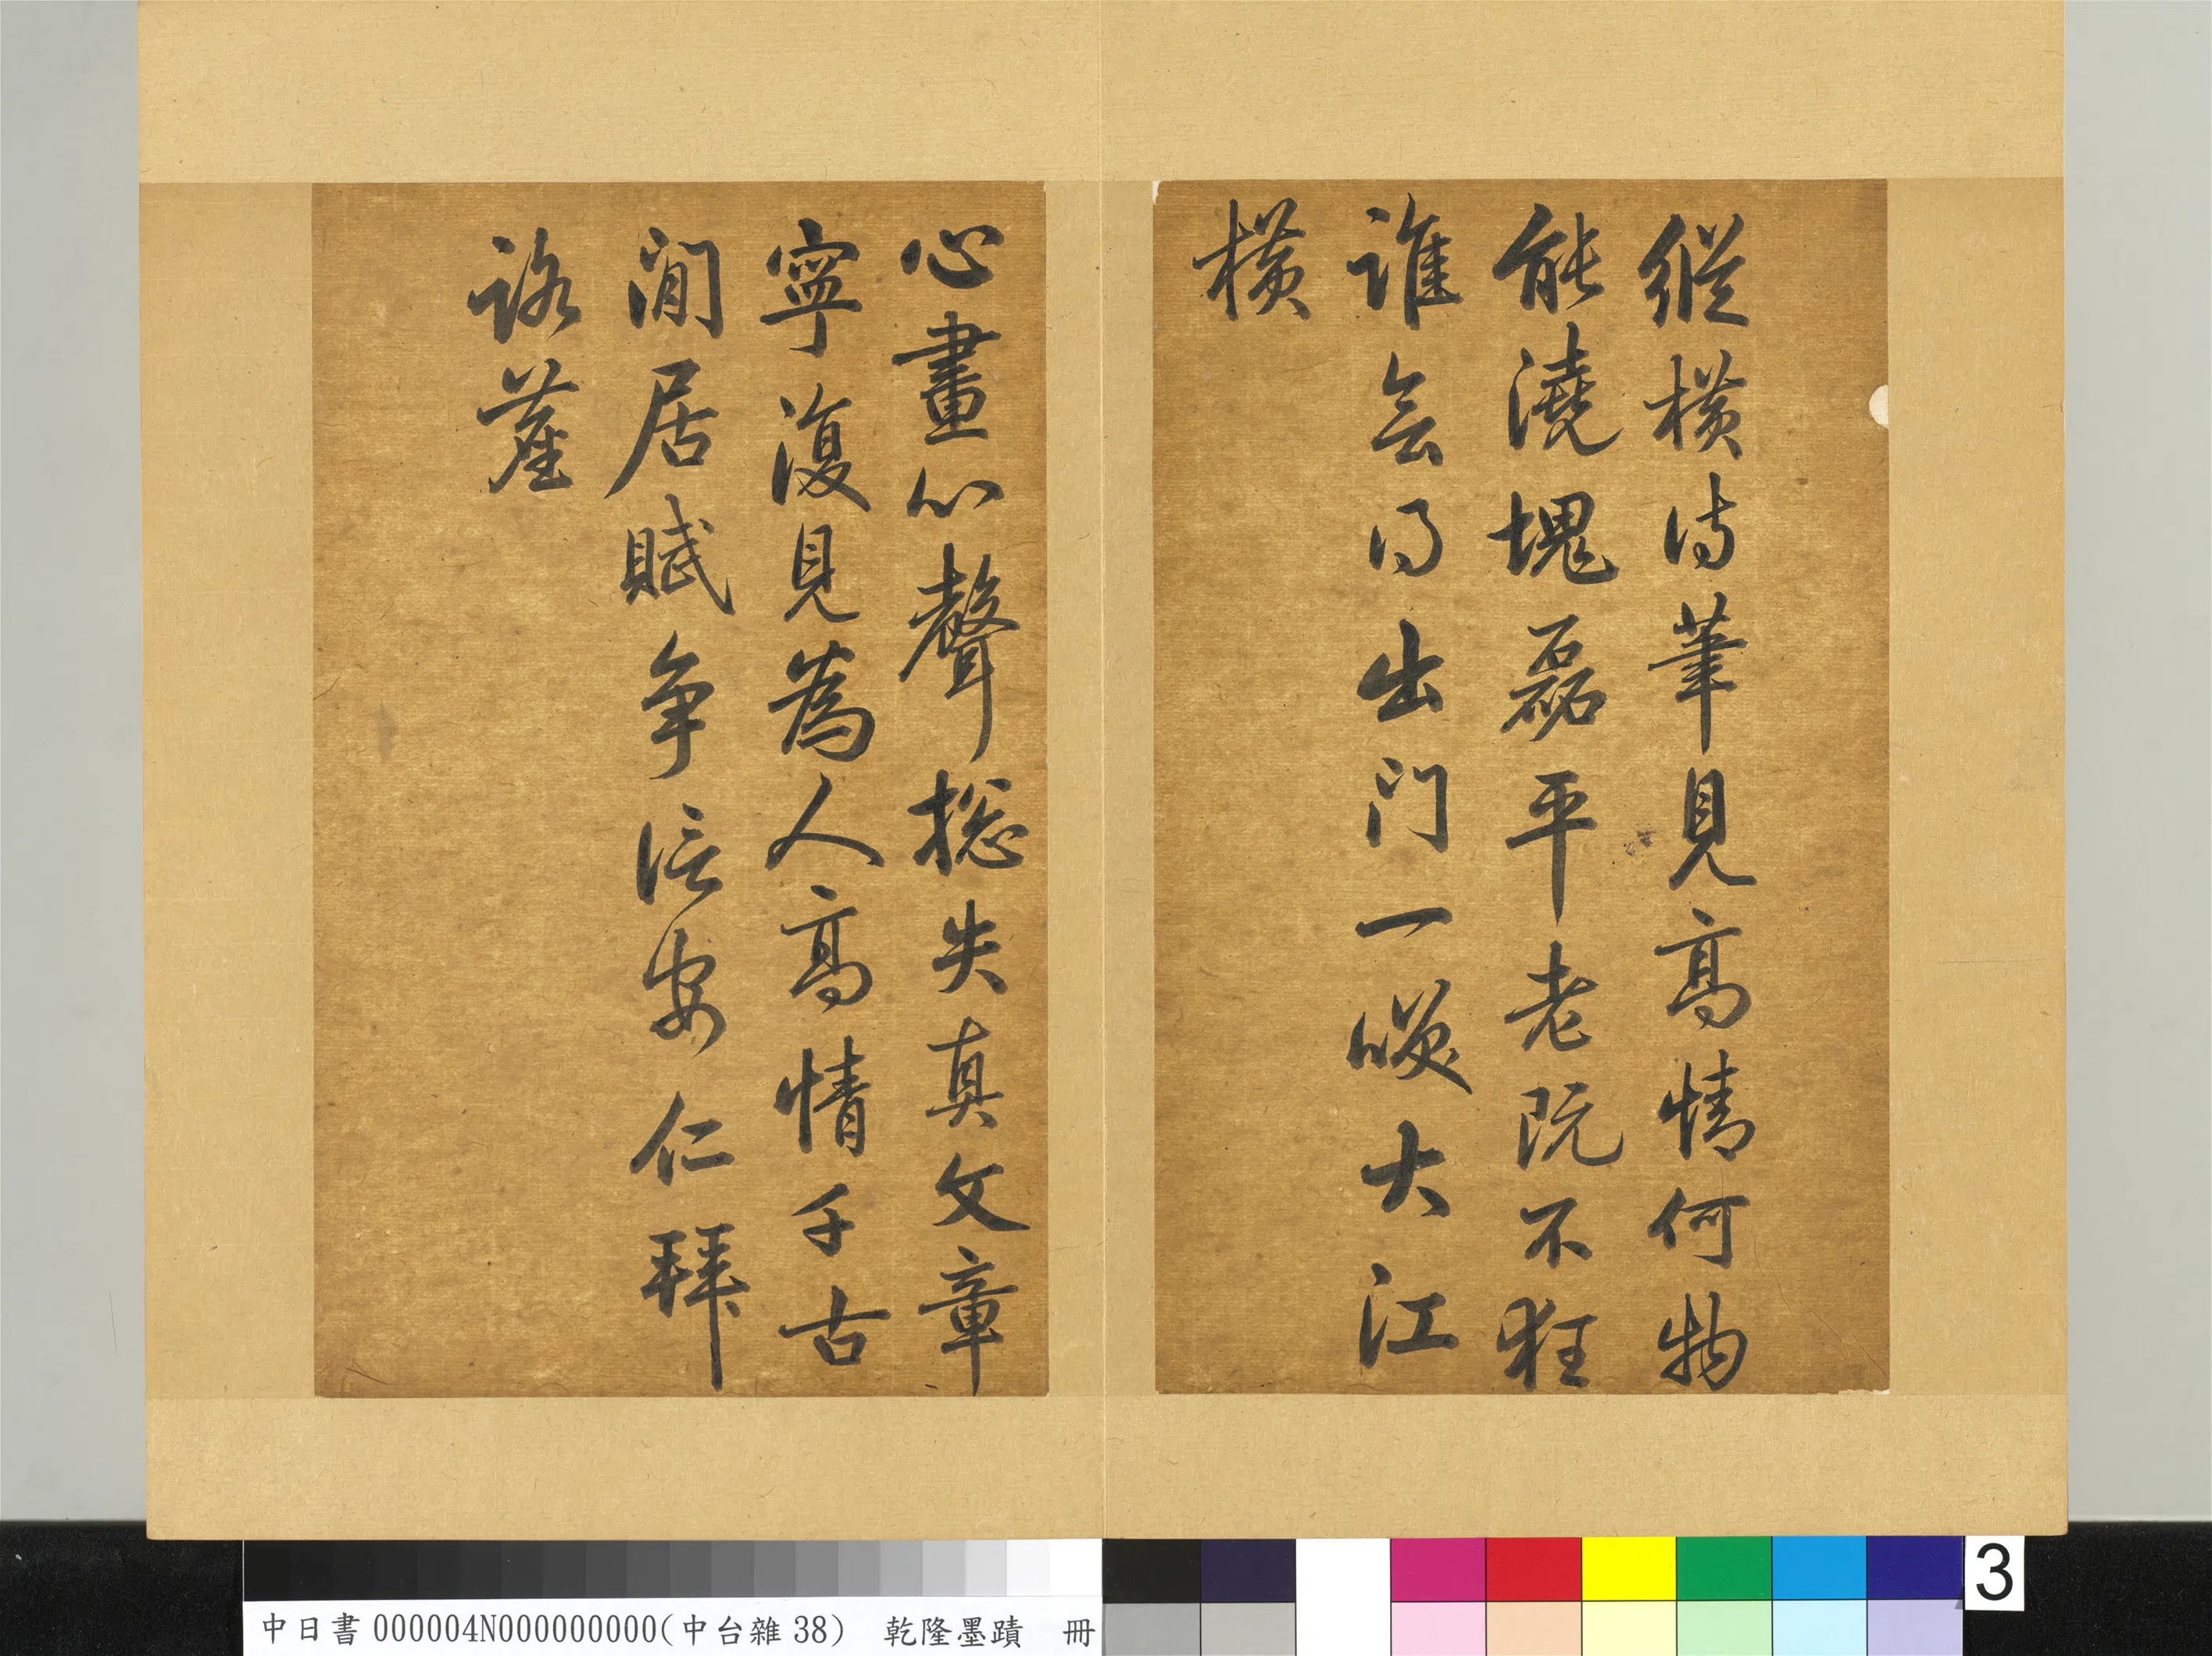 縱橫诗筆見髙情何物
能澆塊磊平老阮不狂
誰会得出门一笑大江
橫
心畫心聲捴失真文章
寧復見為人髙情千古
閒居賦争信安仁拜
路塵
中日書000004N000000000(中台雜38) 乾隆墨蹟 冊
3